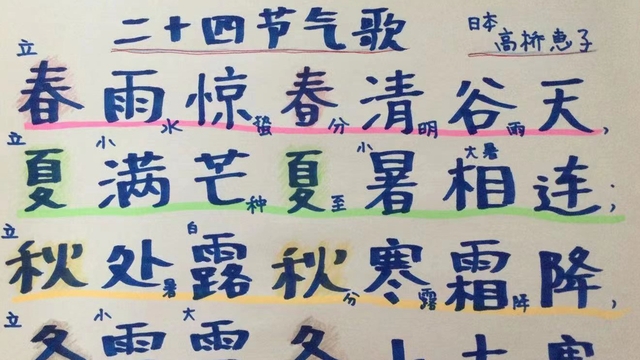 二十四节气歌 日本 高桥恵子
立春雨水惊蛰春分清明谷雨天,
立夏小满芒种夏至小暑大暑相连;
立秋处暑白露秋分寒露霜降降,
立冬小雪大雪冬小大寒